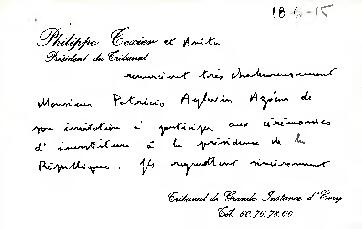 18-6-15
Philippe Texier et Anita
Président du Tribunal
remercient très chaleureusement
Monsieur Patricio Aylwin Azócar de
son invitation à participer aux cérémonies
d'investiture à la présidence de la
République. Ils regrettent sincèrement
Tribunal de Grande Instance d'Evry
Tél. 60.76.78.00